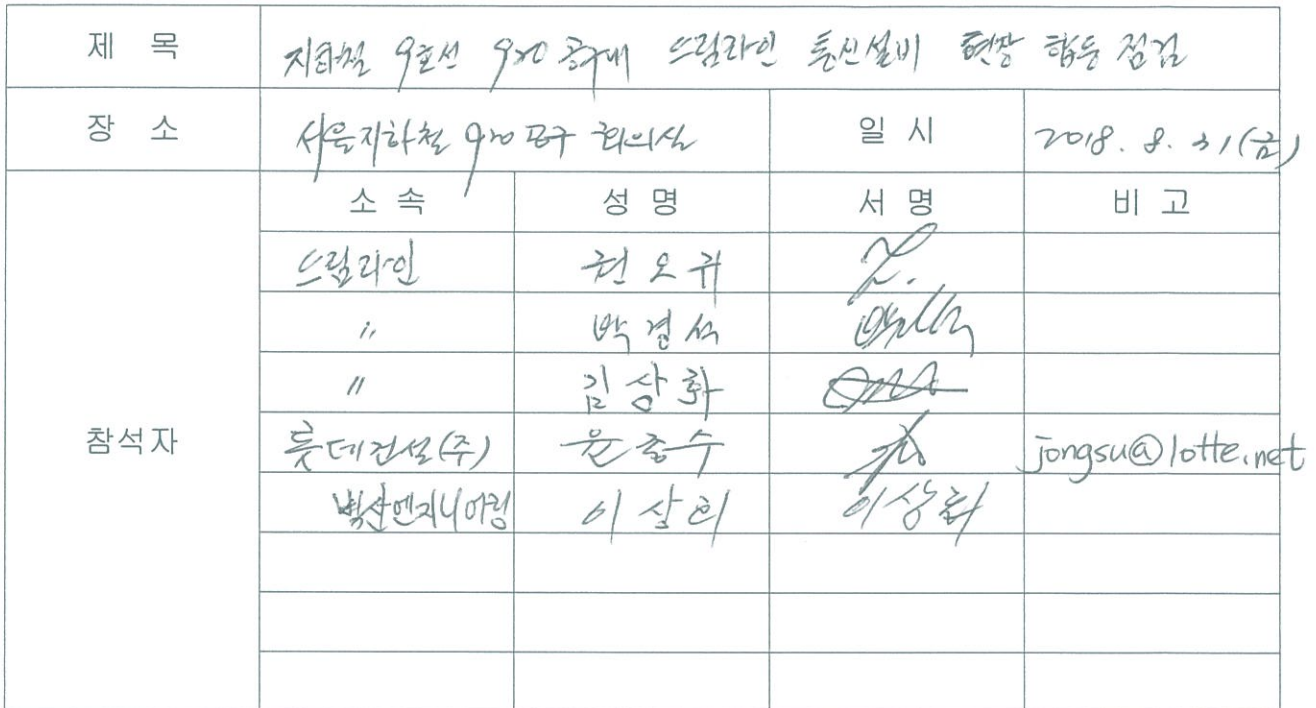 제 목 지하철 9호선 920공구내 드림라인 통신설비 현장 합동 점검
장 소 서울지하철 920공구 회의실 일 시 2018. 8. 31(금)
참석자 소 속 성 명 서 명 비 고
드림라인 권오규
〃 박경석
〃 김상화
롯데건설(주) 윤종수 jongsu@lotte.net
벽산엔지니어링 이상희 이상희